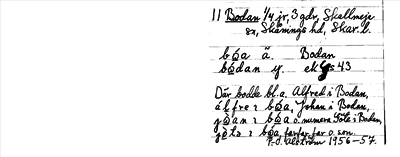 11 Bodan 1/4 jr, 3 gdr, Skallmeja
sn, Skånings hd, Skar. l.
bo̲a ã. Bodan
bo̲dan y. ek 43
Där bodde bl.a. Alfred i Bodan,
álfre ı bo̲a, Johan i Bodan,
jo̲an ı bo̲a o. numera Göte i Bodan,
jö̲tə ı bo̲a, farfar, far o. son.
P.O. Alström 1956-57.